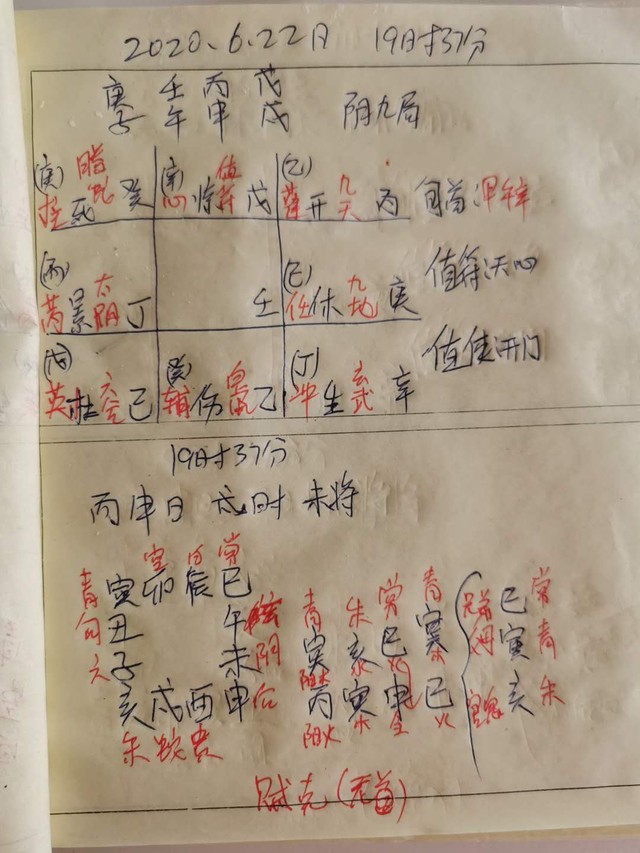 2020.6.22日 19时37分
庚 壬 丙 戊
子 午 申 戌 阴九局
(庚) (辛) 值 (乙)
柱死 癸 心 惊 符 戊 开 九天 丙 旬首 甲辛
(丙)
芮景 太阴 丁 壬 任休 九地 庚 值符天心
(戊) (癸) (丁) 值使开门
英杜 六合 己 辅伤 白虎 乙 冲生 玄武 辛
19时37分
丙申日 戌时 未将
空 白 常
青 寅 卯 辰 巳
勾 丑 午
六 子 未 阴
亥 戌 酉 申 后
朱 蛇 贵
青 朱 常 青
寅 亥 巳 寅
丙 寅 申 巳
阳火 木 金 火
巳 常
寅 青
亥 朱
贼克(元首)